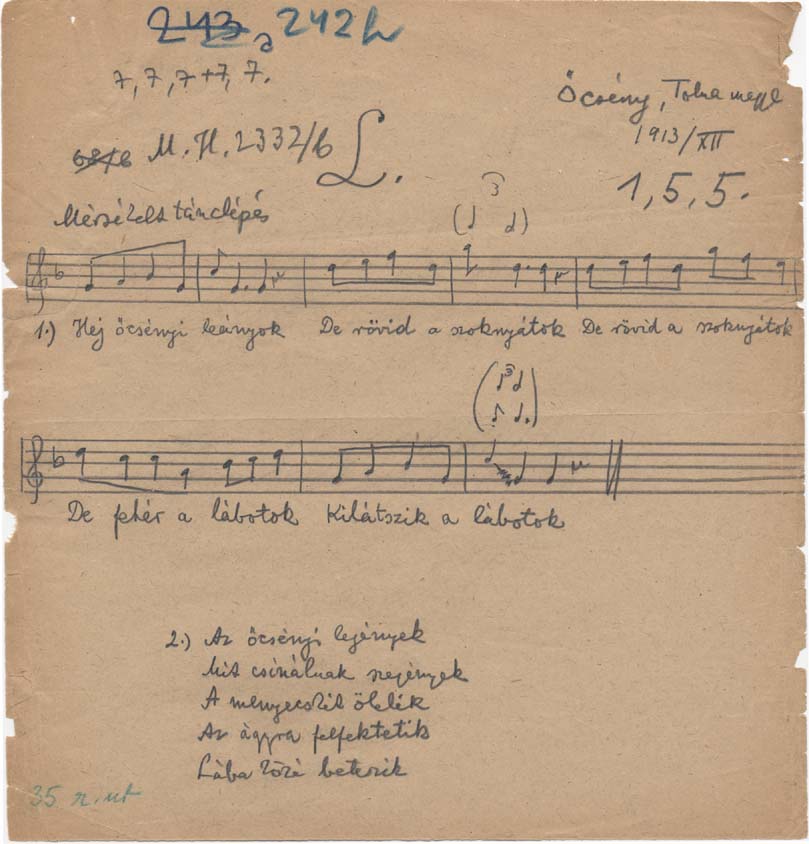 243a 242b
7, 7, 7+7, 7.
Őcsény, Tolna megye
1913/XII
M.H. 2332/b
L.
1, 5, 5.
Mérsékelt tánclépés
3
1.) Héj őcsényi leányok De rövid a szoknyátok De rövid a szoknyátok
3
De fehér a lábotok Kilátszik a lábotok
2.) Az őcsényi legények
Mit csinálnak szegények
A menyecskét ölelik
Az ágyra felfektetik
Lába közé beteszik
35